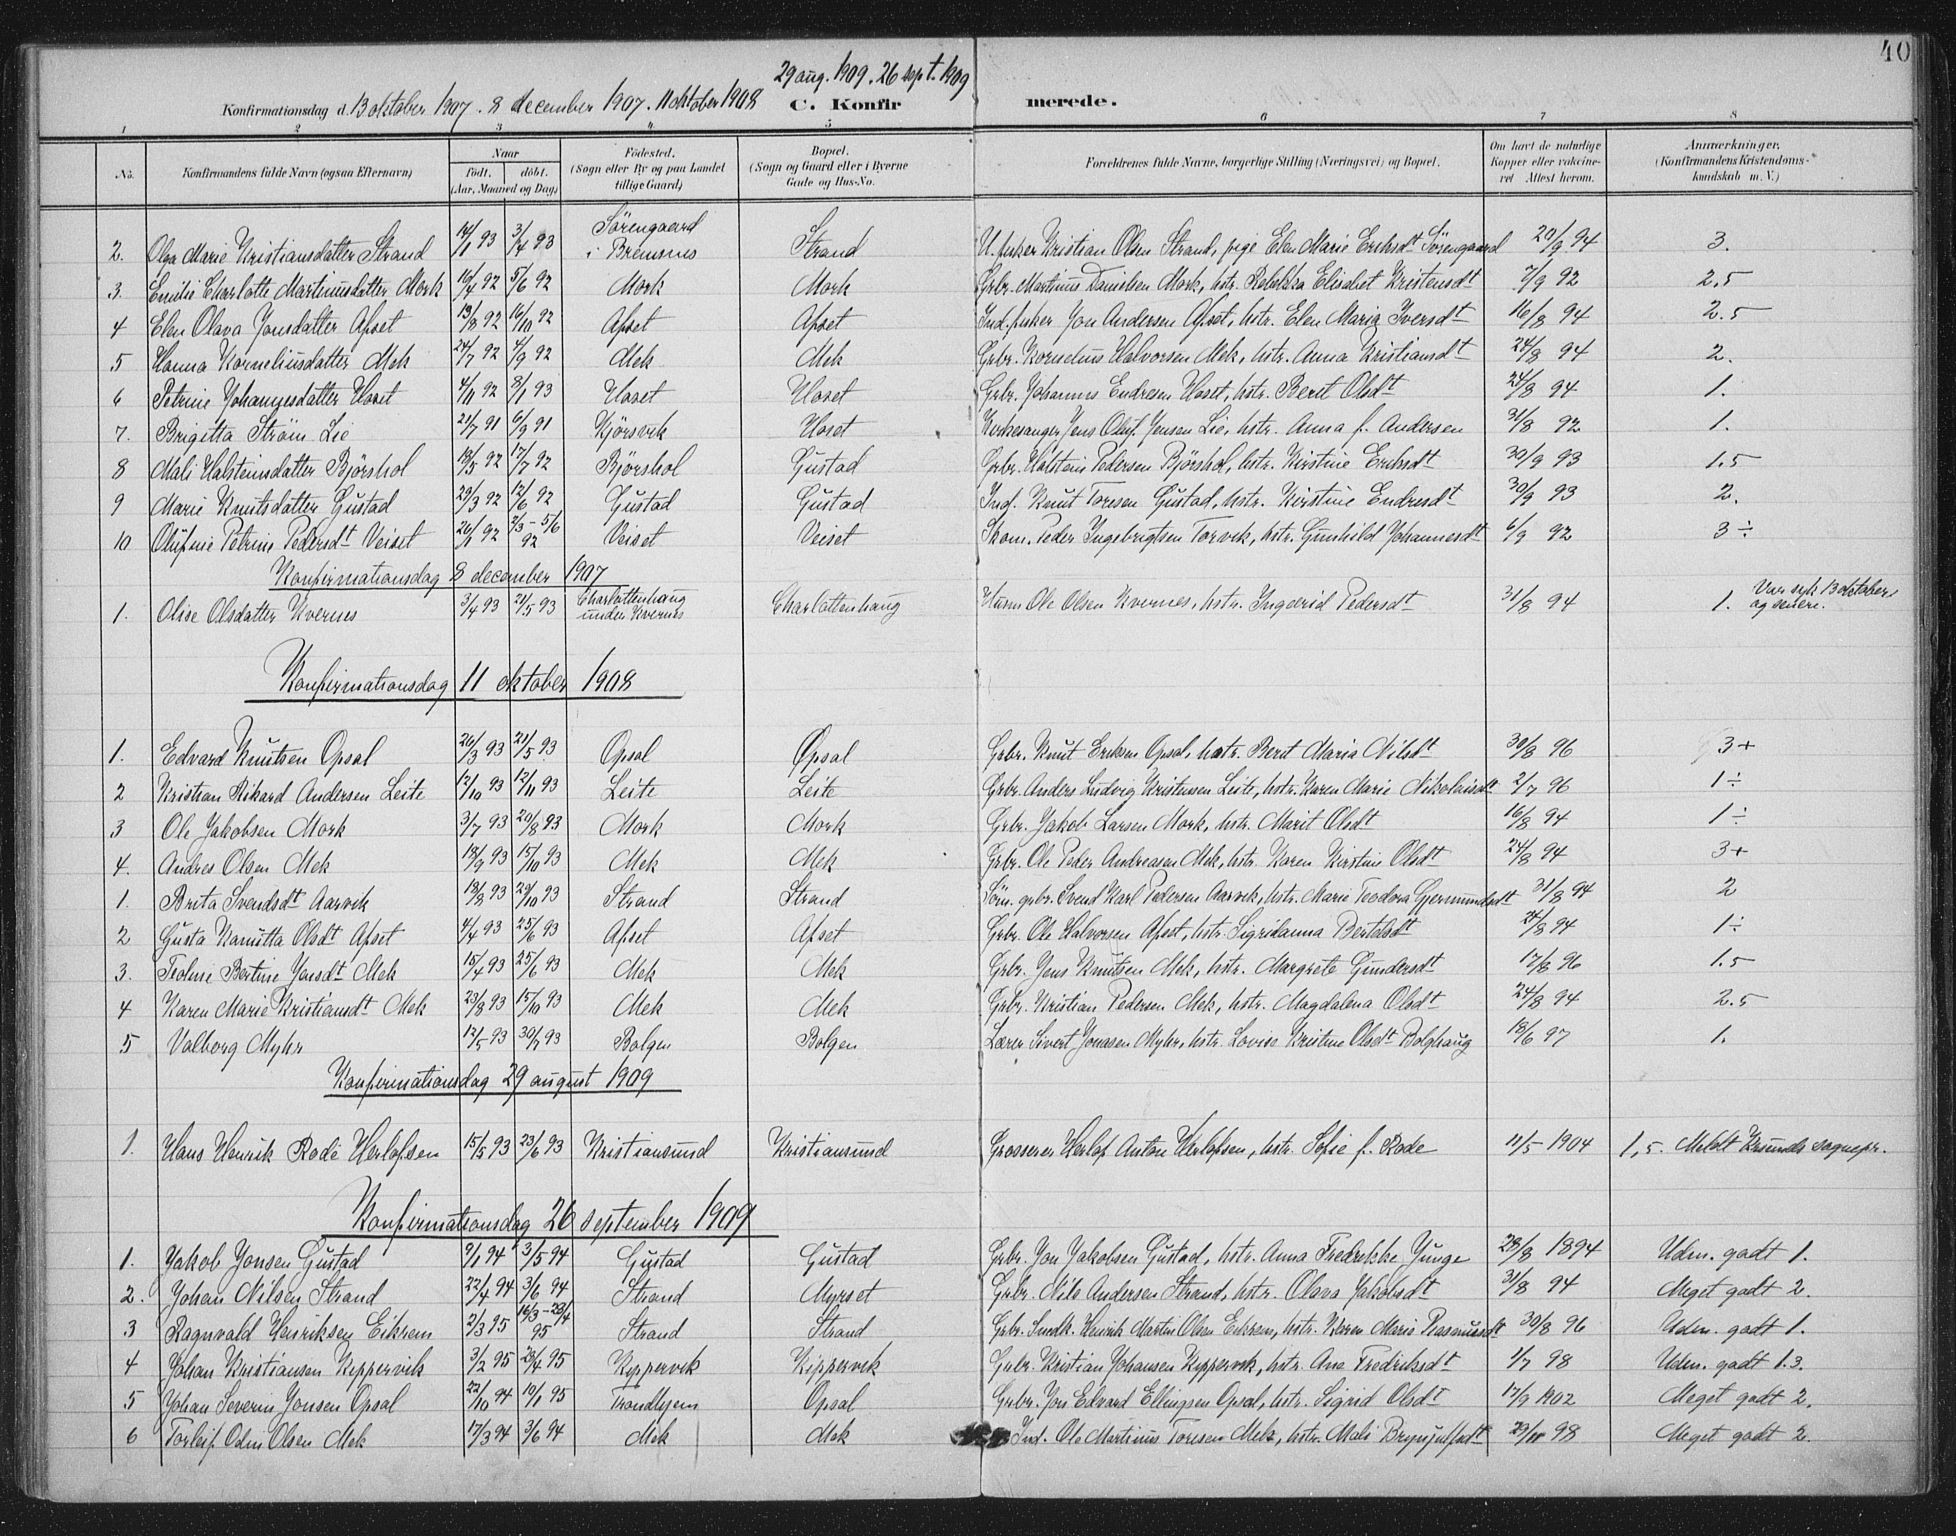 40
29 aug. 1909. 26 sept. 1909
Konfirmationsdag d. 13 oktober 1907. 8 december 1907. 11 oktober 1908 C. Konfir merede.
1 2 3 4 5 6 7 8
No. Konfirmandens fulde Navn (ogsaa Efternavn) Naar født. døbt. (Aar, Maaned og Dag) Fødested. (Sogn eller By og paa Landet tillige Gaard) Bopæl. (Sogn og Gaard eller i Byerne Gade og Hus-No. Forældrenes fulde Navne, borgerlige Stilling (Næringsvei) og Bopæl. Om havt de naturlige Kopper eller vakcineret Attest herom. Anmærkninger. (Konfirmandens Kristendomskundskab m. V.)
2. Olga Marie Kristiansdatter Strand 14/1 93 3/4 93 Sörengaard i Bremsnes Strand U. fisker Kristian Olsen Strand, pige Elen Marie Eriksdt Sörengaard 20/9 94 3.
3. Emilie Charlotte Martinusdatter Mork 16/4 92 5/6 92 Mork Mork Grbr. Martinus Danielsen Mork, hstr. Rebekka Elisabet Kristensdt 7/9 92 2.5
4 Elen Olava Jonsdatter Afset 13/8 92 16/10 92 Afset Afset Ind. fisker Jon Andersen Afset, hstr. Elen Maria Iversdt 16/8 94 2.5
5 Hanna Korneliusdatter Mek 24/7 92 4/9 92 Mek Mek Grbr. Kornelius Halvorsen Mek, hstr. Anna Kristiansdt 24/8 94 2.
6 Petrine Johannesdatter Hoset 4/11 92 8/1 93 Hoset Hoset Grbr. Johannes Endresen Hoset, hstr. Berit Olsdt 24/8 94 1.
7. Brigitta Strøm Lie 21/7 91 6/9 91 Kjörsvik Hoset Kirkesanger Jens Oluf Jensen Lie, hstr. Anna f. Andersen 31/8 92 1.
8 Mali Halsteinsdatter Björshol 18/5 92 17/7 92 Björshol Gustad Grbr. Halstein Pedersen Björshol, hstr. Kirstine Eriksdt 30/9 93 1.5
9 Marie Knutsdatter Gustad 29/3 92 12/6 92 Gustad Gustad Ind. Knut Toresen Gustad, hstr. Kirstine Endresdt 30/9 93 2.
10 Olufine Petrine Pedersdt Veiset 26/1 92 2/3 - 5/6 92 Veiset Veiset Skom. Peder Ingebrigtsen Torvik, hstr. Gunhild Johannesdt 6/9 92 3 ÷
Konfirmationsdag 8 december 1907
1. Olise Olsdatter Kvernes 3/4 93 21/5 93 Charlottenhaug under Kvernes Charlottenhaug Husm. Ole Olsen Kvernes, hstr. Ingerid Pedersdt 31/8 94 1. Var syk 13 oktober og senere.
Konfirmationsdag 11 oktober 1908
1. Edvard Knutsen Opsal 26/3 93 21/5 93 Opsal Opsal Grbr. Knut Eriksen Opsal, hstr. Berit Maria Nilsdt 30/8 96 3+
2 Kristian Rikard Andersen Leite 12/10 93 12/11 93 Leite Leite Grbr. Anders Ludvig Kristensen Leite, hstr. Karen Marie Nikolaisdt 2/7 96 1 ÷
3 Ole Jakobsen Mork 3/7 93 20/8 93 Mork Mork Grbr. Jakob Larsen Mork, hstr. Marit Olsdt 16/8 94 1 ÷
4. Andres Olsen Mek 18/9 93 15/10 93 Mek Mek Grbr. Ole Peder Andreasen Mek, hstr. Karen Kirstine Olsdt 24/8 94 3+
1. Brita Svendsdt Aarvik 18/8 93 29/10 93 Strand Strand Söm. grbr. Svend Karl Pedersen Aarvik, hstr. Marie Teodora Gjermundsdt 31/8 94 2
2 Gusta Kanutta Olsdt Afset 4/4 93 25/6 93 Afset Afset Grbr. Ole Halvorsen Afset, hstr. Sigridanna Bertelsdt 24/8 94 1 ÷
3. Teoline Bertine Jensdt Mek 15/4 93 25/6 93 Mek Mek Grbr. Jens Knutsen Mek, hstr. Margrete Gundersdt 17/8 96 1.5
4 Karen Marie Kristiansdt Mek 23/8 93 15/10 93 Mek Mek Grbr. Kristian Pedersen Mek, hstr. Magdalena Olsdt 24/8 94 2.5
5 Valborg Myhr 12/5 93 30/7 93 Bolgen Bolgen Lærer Sivert Jonassen Myhr, hstr. Lovise Kristine Olsdt Bolghaug 18/6 97 1.
Konfirmationsdag 29 august 1909
1. Hans Henrik Rode Herlofsen 15/5 93 23/6 93 Kristiansund Kristiansund Grosserer Herlof Anton Herlofsen, hstr. Sofie f. Rode 11/5 1904 1,5. Meldt Krsunds sognepr.
Konfirmationsdag 26 september 1909
1. Jakob Jonsen Gustad 9/1 94 3/5 94 Gustad Gustad Grbr. Jon Jakobsen Gustad, hstr. Anna Fredrikke Junge 28/8 1894 Udm. godt 1.
2. Johan Nilsen Strand 22/4 94 3/6 94 Strand Myrset Grbr. Nils Andersen Strand, hstr. Olava Jakobsdt 31/8 94 Meget godt 2.
3 Ragnvald Henriksen Eikrem 2/3 95 16/3 - 28/4 95 Strand Strand Grbr. Smdk. Henrik Martin Olsen Eikrem, hstr. Karen Marie Rasmusdt 30/8 96 Udm. godt 1.
4 Johan Kristiansen Kippervik 3/2 95 28/4 95 Kippervik Kippervik Grbr. Kristian Johansen Kippervik, hstr. Ane Fredriksdt 1/7 98 Udm. godt 1.3.
5 Johan Severin Jonsen Opsal 22/10 94 10/1 95 Trondhjem Opsal Grbr. Jon Edvard Ellingsen Opsal, hstr. Sigrid Olsdt 17/9 1902 Meget godt 2.
6 Torleif Odin Olsen Mek 17/3 94 3/6 94 Mek Mek Ind. Ole Martinus Toresen Mek, hstr. Mali Brynjulfsdt 23/11 98 Meget godt 2.